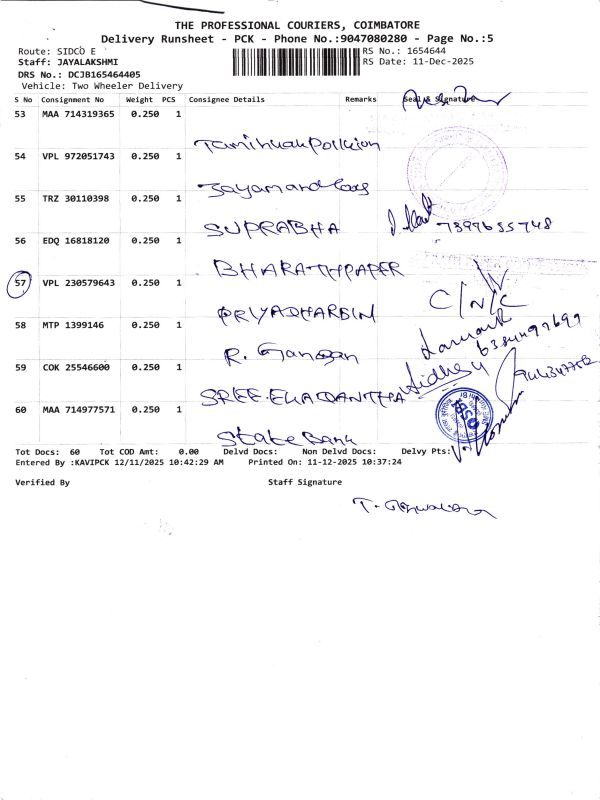 THE PROFESSIONAL COURIERS, COIMBATORE
Delivery Runsheet - PCK - Phone No.:9047080280 - Page No.:5
Route: SIDCO E
RS No.: 1654644
Staff: JAYALAKSHMI
RS Date: 11-Dec-2025
DRS No.: DCJB165464405
Vehicle: Two Wheeler Delivery
S No Consignment No Weight PCS Consignee Details Remarks Seal & Signature
53 MAA 714319365 0.250 1
54 VPL 972051743 0.250 1
55 TRZ 30110398 0.250 1
SUPRABHA 7399655748
56 EDQ 16818120 0.250 1
BHARATHPAPER
57 VPL 230579643 0.250 1 C/N/C
PRIYADHARSIN
58 MTP 1399146 0.250 1 6384499699
R. Ganesan
59 COK 25546600 0.250 1
SREE.EKADANTHA
60 MAA 714977571 0.250 1
State Bank
Tot Docs: 60 Tot COD Amt: 0.00 Delvd Docs: Non Delvd Docs: Delvy Pts:
Entered By :KAVIPCK 12/11/2025 10:42:29 AM Printed On: 11-12-2025 10:37:24
Verified By Staff Signature